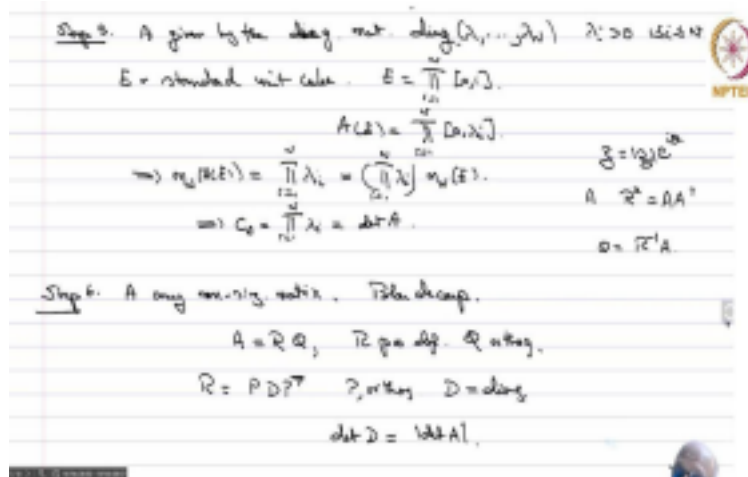 Step 5. A given by the diag. mat. diag(λ₁, ..., λ_N) λi > 0 1≤i≤N
NPTEL
E = standard unit cube. E = ∏_{i=1}^{N} [0,1].
A(E) = ∏_{i=1}^{N} [0,λi].
⇒ m_N(A(E)) = ∏_{i=1}^{N} λi = (∏_{i=1}^{N} λi) m_N(E).
⇒ C_A = ∏_{i=1}^{N} λi = det A.
z = |z|e^{iθ}
A R² = AA'
Q = R⁻¹A.
Step 6. A any non-sing. matrix. Polar decomp.
A = RQ, R pos def. Q orthog.
R = PDP^T P, orthog D = diag
det D = |det A|.